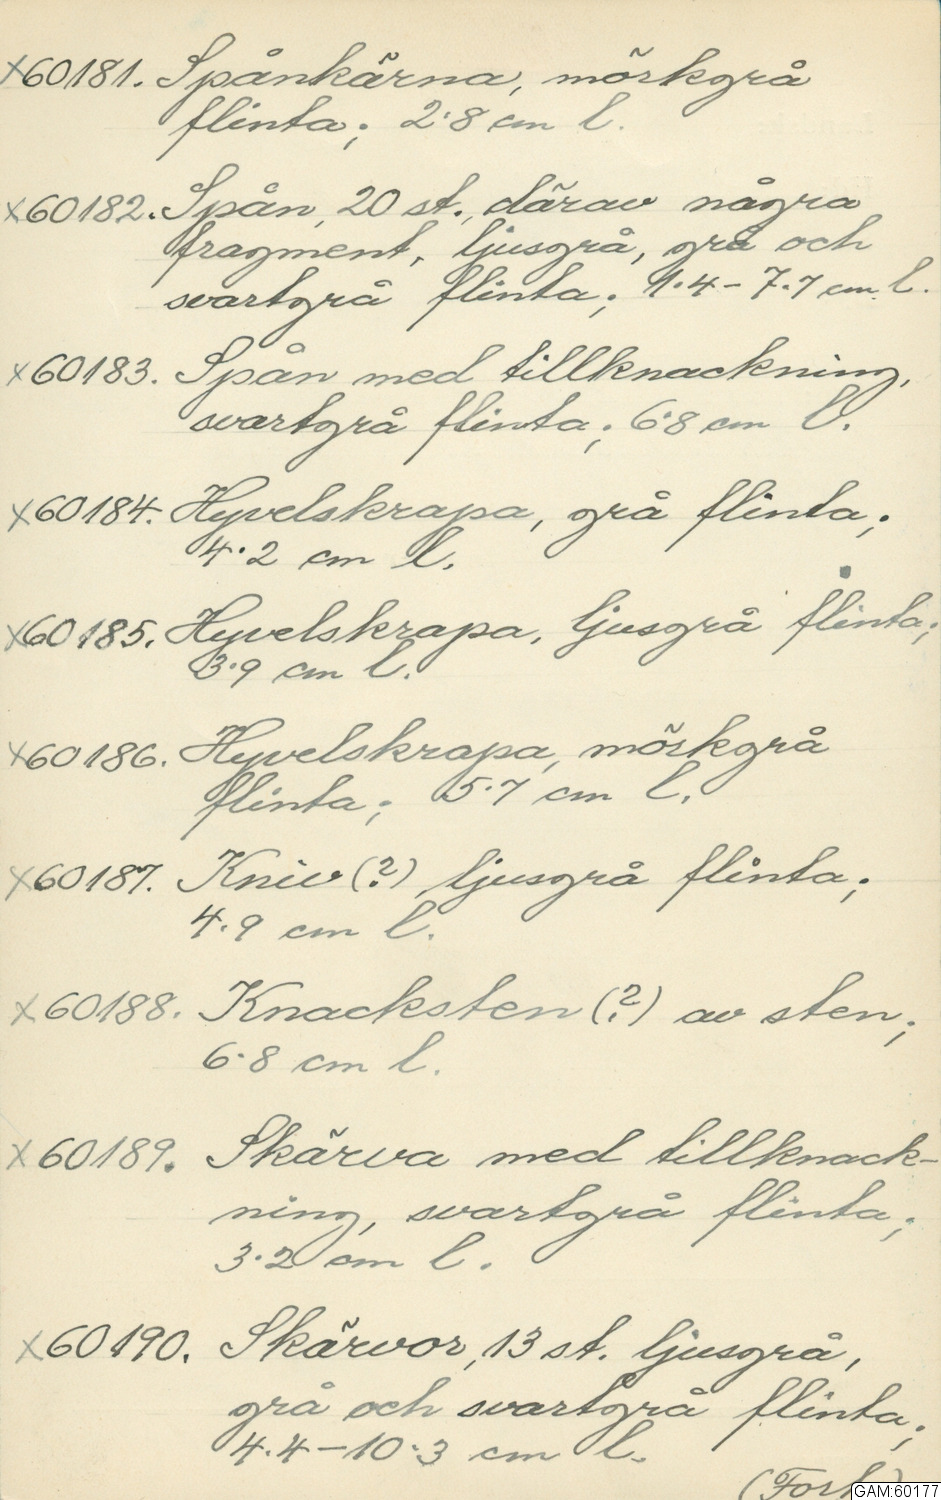 x60181. Spånkärna, mörkgrå
flinta; 2·8 cm l.
x60182. Spån, 20 st., därav några
fragment, ljusgrå, grå och
svartgrå flinta; 1·4 - 7·7 cm l.
x60183. Spån med tillknackning,
svartgrå flinta; 6·8 cm l.
x60184. Hyvelskrapa, grå flinta;
4·2 cm l.
x60185. Hyvelskrapa, ljusgrå flinta;
3·9 cm l.
x60186. Hyvelskrapa, mörkgrå
flinta; 5·7 cm l.
x60187. Kniv (?) ljusgrå flinta;
4·9 cm l.
x60188. Knacksten (?) av sten;
6·8 cm l.
x60189. Skärva med tillknack-
ning, svartgrå flinta;
3·2 cm l.
x60190. Skärvor, 13 st. ljusgrå,
grå och svartgrå flinta;
4·4 - 10·3 cm l.
GAM:60177